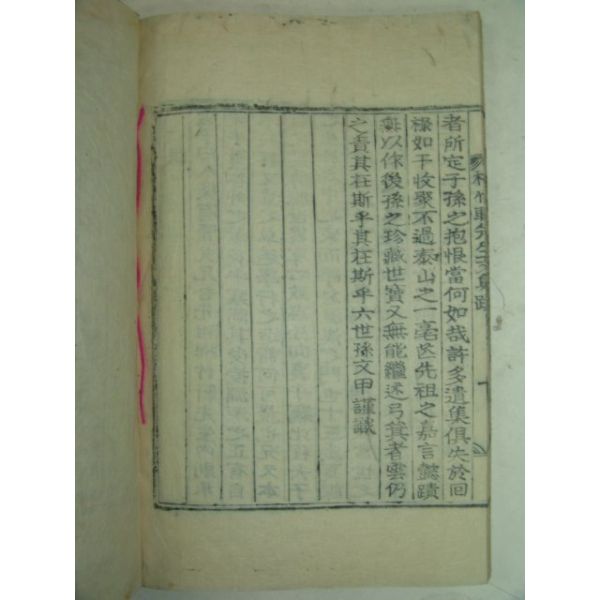 者所定子孫之抱恨當何如哉許多遺集俱失於回
祿如干收聚不過泰山之一毫区先祖之嘉言懿蹟
無以作後孫之珍藏世寶又無能繼述弓箕者雲仍
之責其在斯乎其在斯乎六世孫文甲謹識